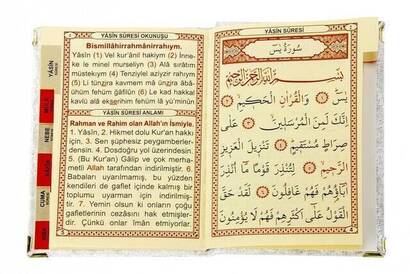 YÂSÎN SÛRESİ OKUNUŞU
Bismillâhirrahmânirrahıym.
Yâsîn (1) Vel kur'ânil hakiym (2) İnne-
ke le minel murseliyn (3) Alâ sırâtım
müstekıym (4) Tenziylel aziyzir rahıym
(5) Li tünzira kavmen mâ ünzira âbâ-
ühüm fehüm ğâfilûn (6) Le kad hakkal
kavlü alâ ekserihim fehüm lâ yü'minûn
YÂSÎN SÛRESİ ANLAMI
Rahman ve Rahim olan Allah'ın İsmiyle.
1. Yâsîn, 2. Hikmet dolu Kur'an hakkı
için, 3. Sen şüphesiz peygamberler-
densin. 4. Dosdoğru yol üzerindesin.
5. (Bu Kur'an) Gâlip ve çok merha-
metli Allah tarafından indirilmiştir. 6.
Babaları uyarılmamış, bu yüzden
kendileri de gaflet içinde kalmış bir
toplumu uyarman için indirilmiş-
tir. 7. Yemin olsun ki onların çoğu
gafletlerinin cezasını hak etmişler-
dir. Çünkü onlar îman etmiyorlar.
YÂSÎN
NEBE
CUMA
YÂSÎN SÛRESİ
سُورَةُ يٰسٓ
بِسْمِ اللهِ الرَّحْمٰنِ الرَّحِيمِ
يٰسٓ ﴿١﴾ وَالْقُرْاٰنِ الْحَكِيمِ ﴿٢﴾
اِنَّكَ لَمِنَ الْمُرْسَلِينَ ﴿٣﴾ عَلٰى
صِرَاطٍ مُسْتَقِيمٍ ﴿٤﴾ تَنْزِيلَ الْعَزِيزِ
الرَّحِيمِ ﴿٥﴾ لِتُنْذِرَ قَوْمًا مَٓا اُنْذِرَ
اٰبَٓاؤُهُمْ فَهُمْ غَافِلُونَ ﴿٦﴾ لَقَدْ حَقَّ
الْقَوْلُ عَلٰٓى اَكْثَرِهِمْ فَهُمْ لَا يُؤْمِنُونَ